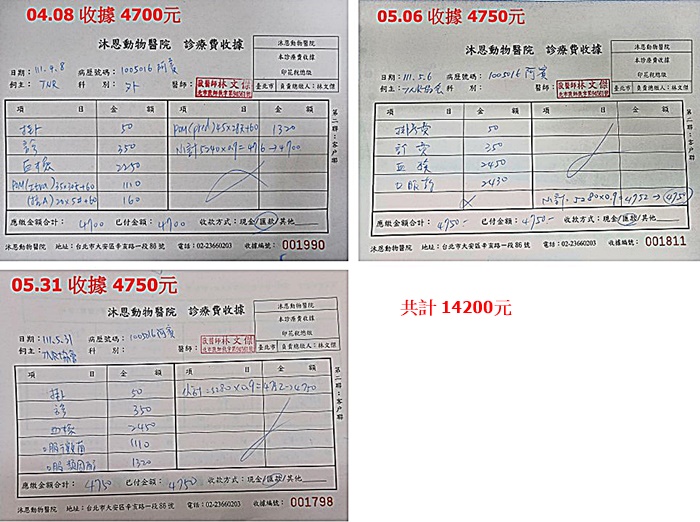 04.08 收據 4700元
沐恩動物醫院 診療費收據
沐恩動物醫院
本診療費收據
印花稅總繳
臺北市 負責總繳人：林文傑
日期：111.4.8 病歷號碼：1005016 阿賓
飼主：TNR 科 別： 醫師：
獸醫師林文傑
項 目 金 額 項 目 金 額
掛 50 1320
診 350 →4700
血檢 2250
1110
160
應繳金額合計：4700 已付金額：4700 收款方式：現金/匯款/其他
沐恩動物醫院 地址：台北市大安區辛亥路一段86號 電話：02-23660203 收據編號：001990
第二聯：客戶聯
05.06 收據 4750元
沐恩動物醫院 診療費收據
沐恩動物醫院
本診療費收據
印花稅總繳
臺北市 負責總繳人：林文傑
日期：111.5.6 病歷號碼：1005016 阿賓
飼主：TNR協會 科 別： 醫師：
獸醫師林文傑
項 目 金 額 項 目 金 額
掛號費 50
診費 350
血檢 2450
口服藥 2430
小計：5280×0.9=4752→4750
應繳金額合計：4750- 已付金額：4750- 收款方式：現金/匯款/其他
沐恩動物醫院 地址：台北市大安區辛亥路一段86號 電話：02-23660203 收據編號：001811
第二聯：客戶聯
05.31 收據 4750元
沐恩動物醫院 診療費收據
沐恩動物醫院
本診療費收據
印花稅總繳
臺北市 負責總繳人：林文傑
日期：111.5.31 病歷號碼：1005016 阿賓
飼主：TNR協會 科 別： 醫師：
獸醫師林文傑
項 目 金 額 項 目 金 額
掛 50 小計=5280×0.9=4752→4750
診 350
血檢 2450
1110
1320
應繳金額合計：4750 已付金額：4750 收款方式：現金/匯款/其他
沐恩動物醫院 地址：台北市大安區辛亥路一段86號 電話：02-23660203 收據編號：001798
第二聯：客戶聯
共計 14200元